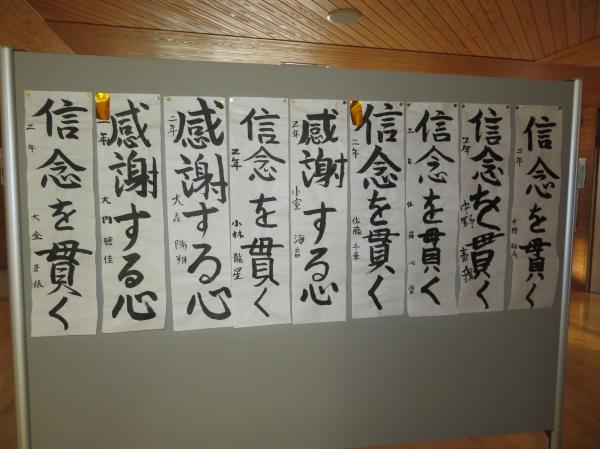 信念を貫く
二年
中野
信念を貫く
二年
中野
信念を貫く
二年
佐藤心愛
信念を貫く
二年
佐藤千華
感謝する心
二年
小室海音
信念を貫く
二年
小林龍星
感謝する心
二年
大森陽翔
感謝する心
一年
大内
佳
信念を貫く
二年
大金